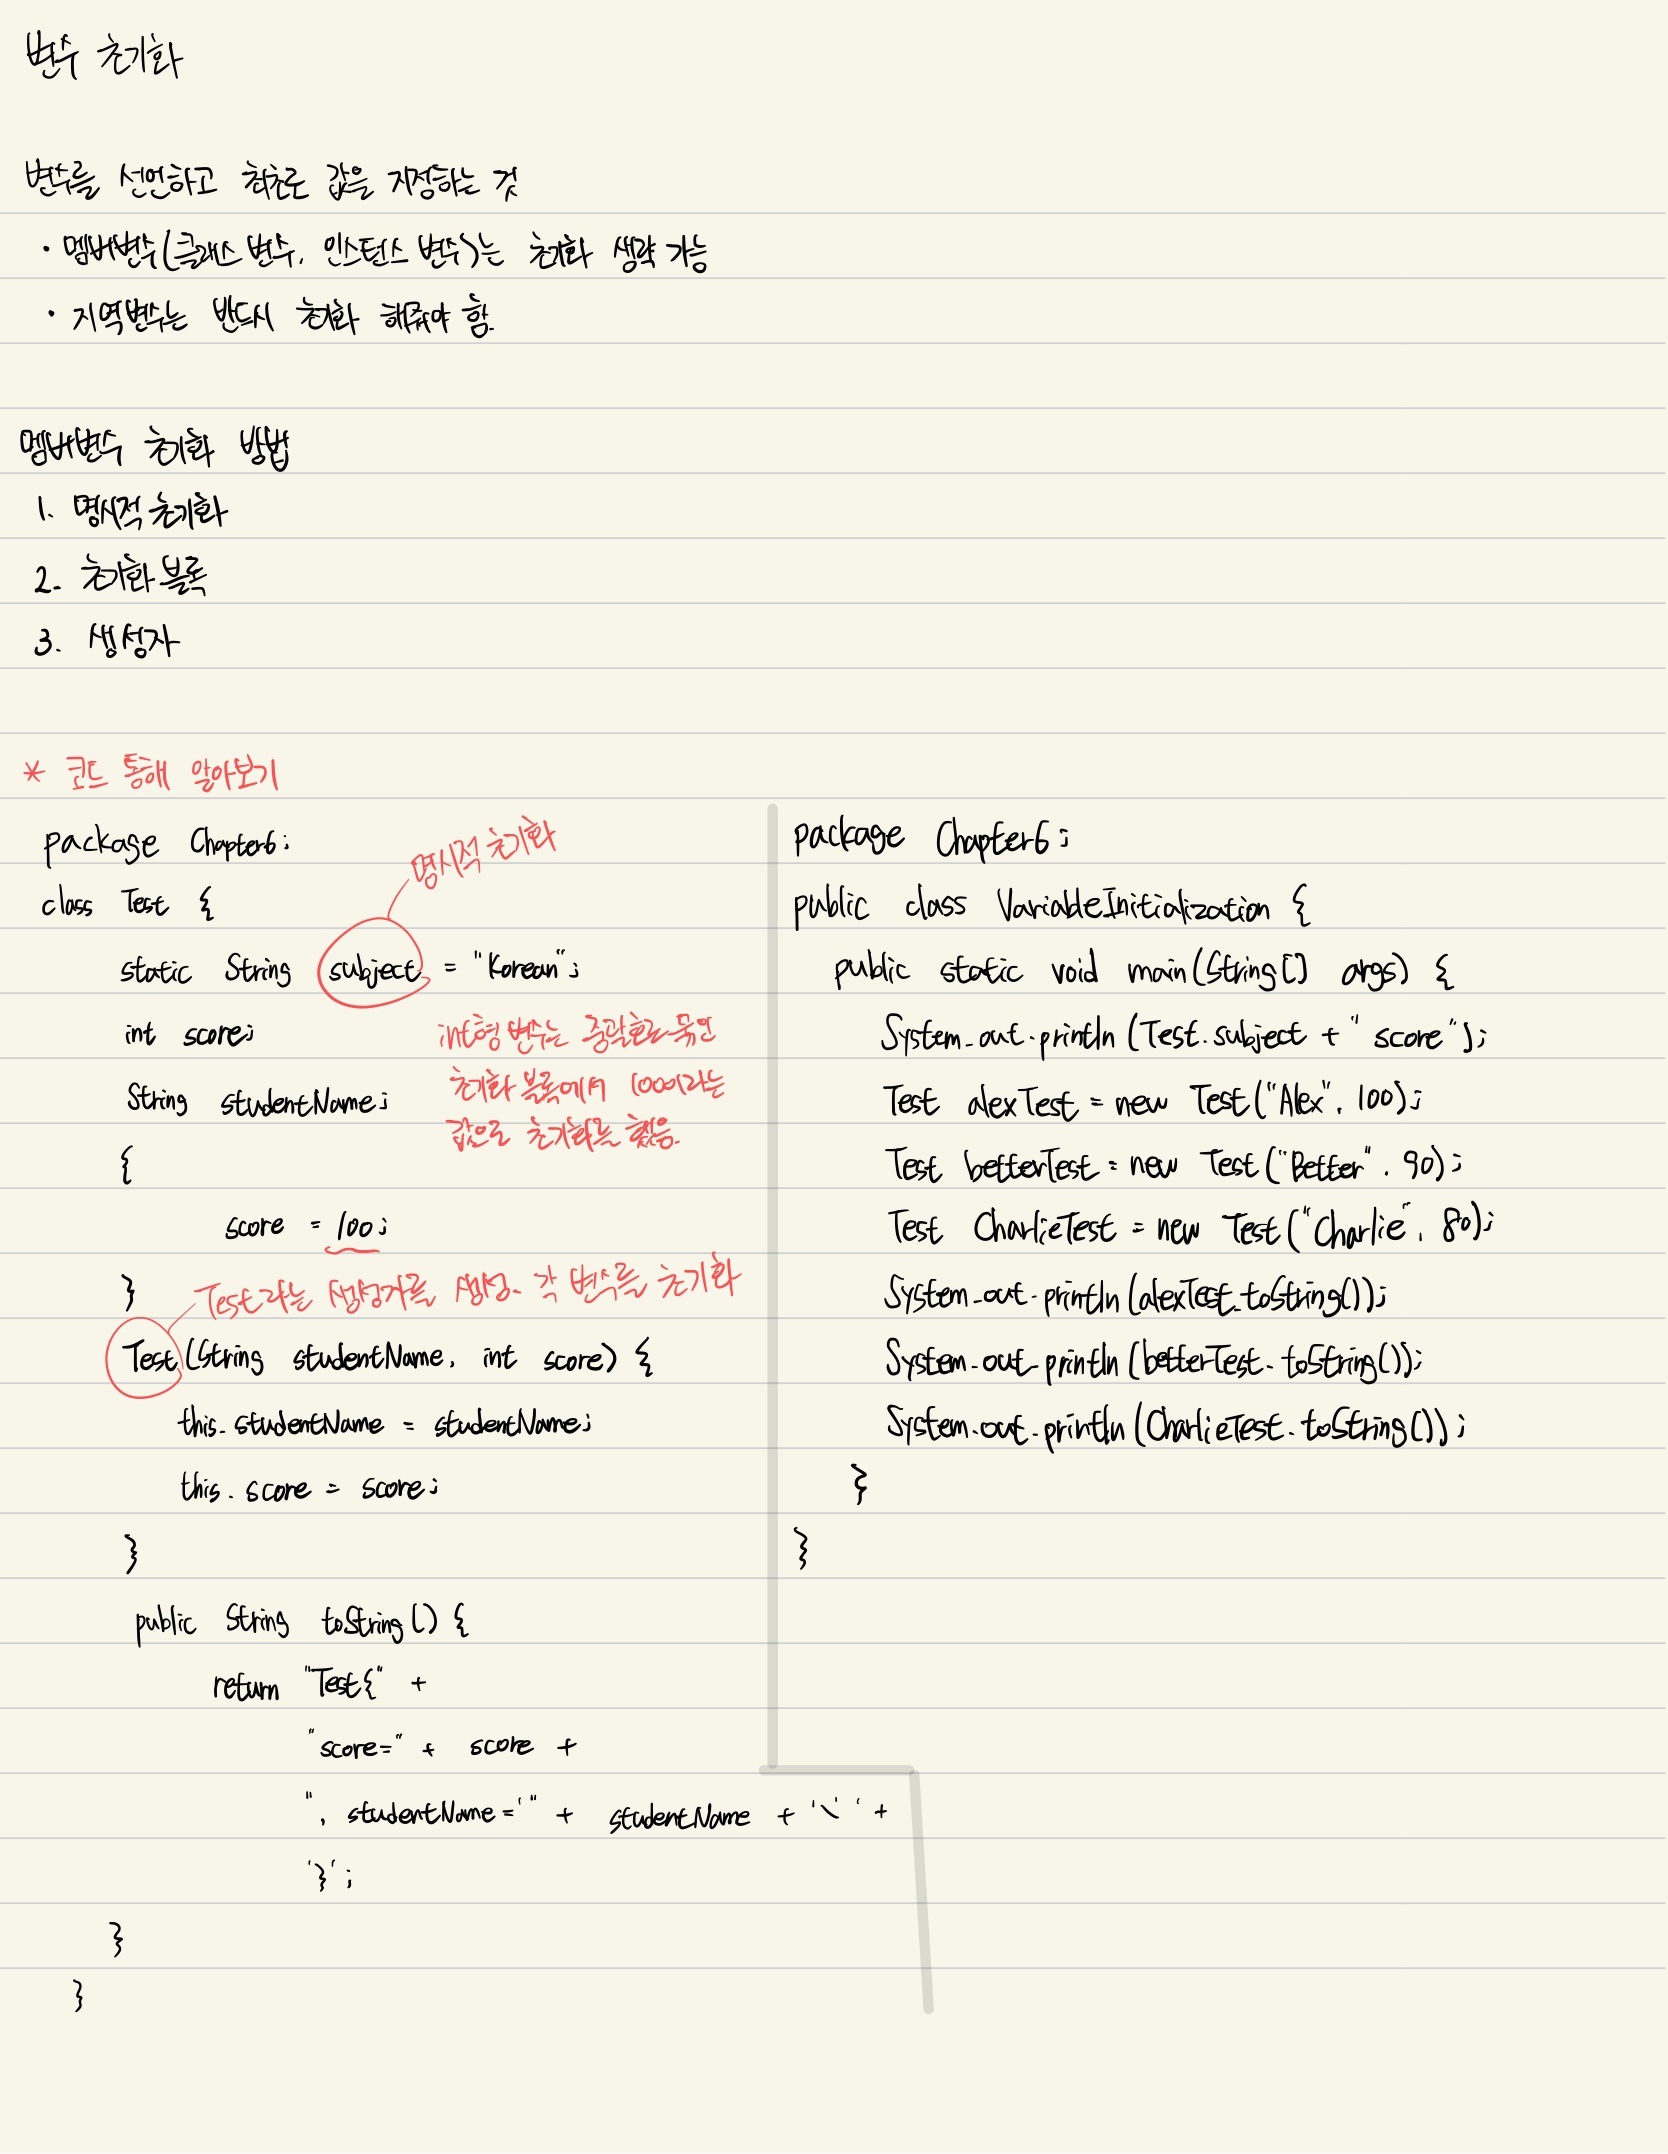 변수 초기화
변수를 선언하고 최초로 값을 지정하는 것
· 멤버변수(클래스 변수, 인스턴스 변수)는 초기화 생략 가능
· 지역변수는 반드시 초기화 해줘야 함.
멤버변수 초기화 방법
1. 명시적 초기화
2. 초기화 블록
3. 생성자
* 코드 통해 알아보기
package Chapter6;
명시적 초기화
class Test {
static String subject = "Korean";
int score;
int형 변수는 중괄호로 묶인
초기화 블록에서 100이라는
값으로 초기화를 했음.
String studentName;
{
score = 100;
}
Test라는 생성자를 생성. 각 변수를 초기화
Test(String studentName, int score) {
this.studentName = studentName;
this.score = score;
}
public String toString() {
return "Test{" +
"score=" + score +
", studentName='" + studentName + '\' ' +
'}';
}
}
package Chapter6;
public class VariableInitialization {
public static void main(String[] args) {
System.out.println(Test.subject + " score");
Test alexTest = new Test("Alex", 100);
Test betterTest = new Test("Better", 90);
Test CharlieTest = new Test("Charlie", 80);
System.out.println(alexTest.toString());
System.out.println(betterTest.toString());
System.out.println(CharlieTest.toString());
}
}